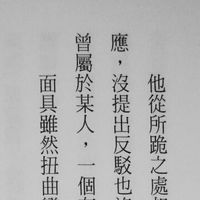 他從所跪之處
應，沒提出反駁也
曾屬於某人，一個
面具雖然扭曲